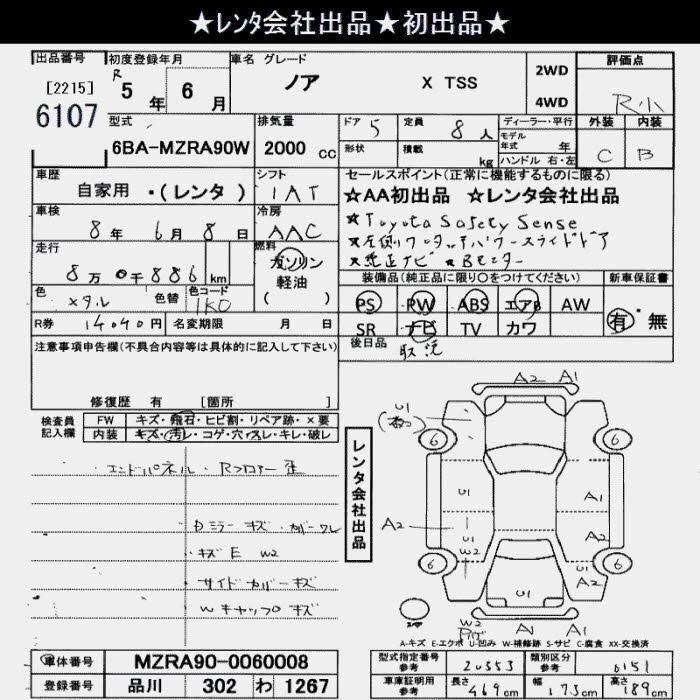 ★レンタ会社出品★初出品★
出品番号 初度登録年月 車名 グレード 評価点
[2215] R 5年 6月 ノア X TSS 2WD 4WD R小
6107
型式 排気量 ドア 5 定員 8人 ディーラー・平行 外装 内装
6BA-MZRA90W 2000cc 形状 積載 kg モデル年式 年 ハンドル 右・左 C B
車歴 シフト セールスポイント(正常に機能するものに限る)
自家用 ・(レンタ ) IAT ★AA初出品 ☆レンタ会社出品
車検 冷房 ★Toyota Safety Sense
8年 6月 8日 AAC ★左側ワンタッチパワースライドドア
走行 燃料 ★純正ナビ ★Bモニター
8万0千886km ガソリン 軽油 ( ) 装備品(純正品に限り○をつけてください) 新車保証書
色 色替 色コード PS PW ABS エアB AW 有・無
メタル 1K0 SR ナビ TV カワ
R券 14040円 名変期限 月 日 後日品 取説
注意事項申告欄(不具合内容等は具体的に記入して下さい)
修復歴 有 [箇所 ]
検査員記入欄 FW キズ・飛石・ヒビ割・リペア跡・×要
内装 キズ・汚レ・コゲ・穴・スレ・キレ・破レ
・エンドパネル・Rフロアー歪
Dミラーキズ・カバーワレ
・キズE W2
サイドカバーキズ
Wキャップ0キズ
レンタ会社出品
A2 A1
U1
6 6
U1 A1
A2 U1 A2
W2
6 6
U1 A2
W2
A1 A1
A-キズ E-エクボ U-凹み W-補修跡 S-サビ C-腐食 XX-交換済
車体番号 MZRA90-0060008 型式指定番号 参考 20553 類別区分 参考 0151
登録番号 品川 302 わ 1267 車庫証明用 参考 長さ 469cm 幅 173cm 高さ 189cm